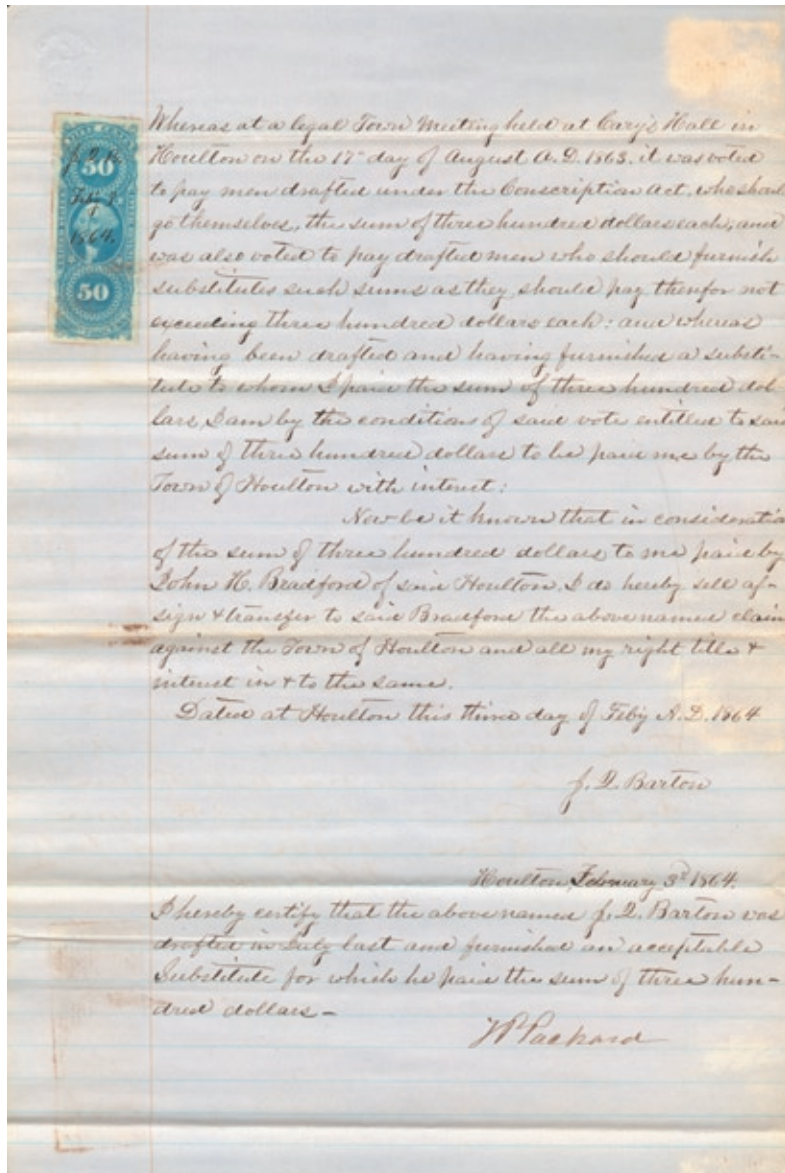 50
J. Q. B.
Feby 3
1864.
50
Whereas at a legal Town Meeting held at Cary's Hall in
Houlton on the 17th day of August A.D. 1863. it was voted
to pay men drafted under the Conscription Act, who shoul
go themselves, the sum of three hundred dollars each, and
was also voted to pay drafted men who should furnish
substitutes such sums as they should pay therefor not
exceeding three hundred dollars each: and whereas
having been drafted and having furnished a substi-
tute to whom I paid the sum of three hundred dol-
lars, I am by the conditions of said vote entitled to said
sum of three hundred dollars to be paid me by the
Town of Houlton with interest:
Now be it known that in consideratio
of the sum of three hundred dollars to me paid by
John H. Bradford of said Houlton, I do hereby sell as-
sign & transfer to said Bradford the above named claim
against the Town of Houlton and all my right title &
interest in & to the same.
Dated at Houlton this third day of Feby A.D. 1864
J. Q. Barton
Houlton, February 3d 1864.
I hereby certify that the above named J. Q. Barton was
drafted in July last and furnished an acceptable
Substitute for which he paid the sum of three hun-
dred dollars—
Packard